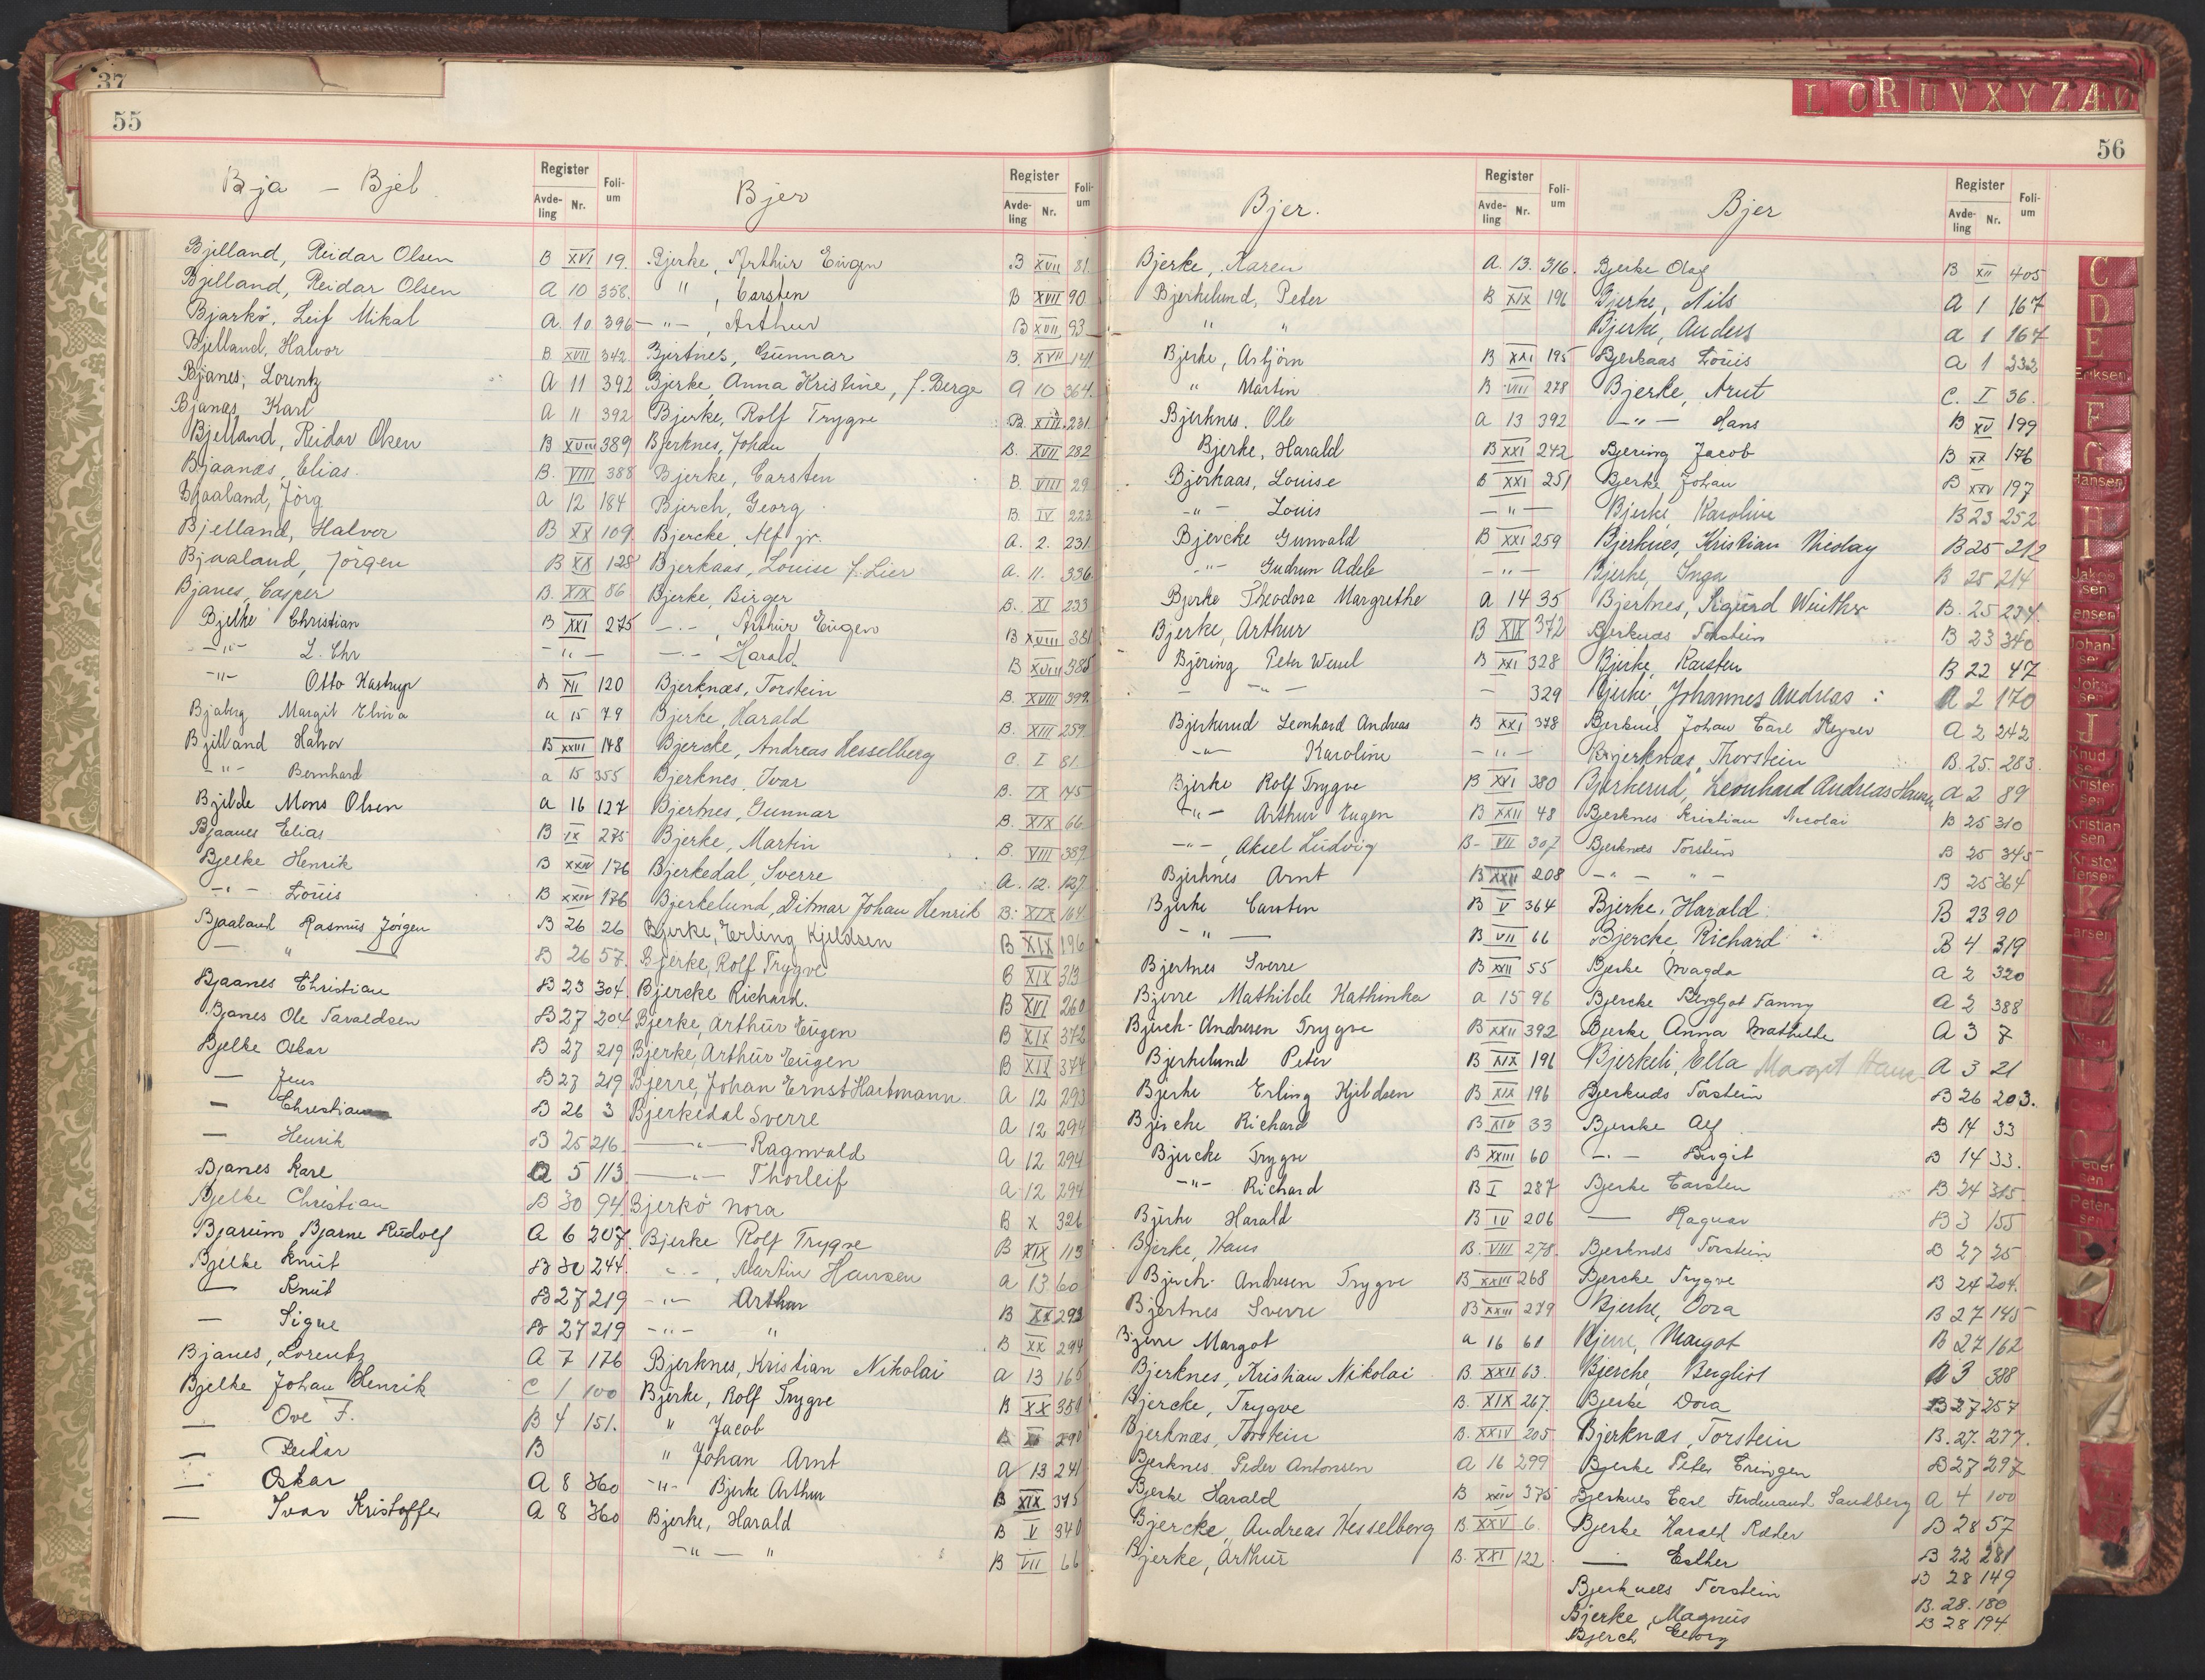 37
55
Bja - Bjel
Register
Avde-ling Nr.
Foli-um
Bjelland, Reidar Olsen B XVI 19.
Bjelland, Reidar Olsen A 10 358.
Bjarkö, Leif Mikal A. 10 396
Bjelland, Halvor B. XVII 342.
Bjanes, Lorentz A 11 392
Bjanæs, Karl A 11 392
Bjelland, Reidar Olsen B XVIII 389
Bjaanæs, Elias. B. VIII 388
Bjaaland, Jörg A 12 184
Bjelland, Halvor B XX 109.
Bjaaland, Jörgen B XX 128
Bjanes, Casper B. XIX 86
Bjelke Christian B XXI 275
-"- L. Chr -"-
-"- Otto Kastrup B XII 120
Bjaberg Margit Elvira a 15 79
Bjelland Halvor B XXIII 148
-"- Bernhard a 15 355
Bjelde Mons Olsen a 16 127
Bjaanes Elias B IX 275
Bjelke Henrik B XXIV 176
-"- Louis B XXIV 176
Bjaaland Rasmus Jörgen B 26 26
— " — B 26 57.
Bjaanes Christian B 23 304
Bjanes Ole Tavaldsen B 27 204
Bjelke Oskar B 27 219
— Jens B 27 219
— Christian B 26 3
— Henrik B 25 216
Bjanes Karl A 5 113
Bjelke Christian B 30 94
Bjarum Bjarne Rudolf A 6 207.
Bjelke Knut B 30 244.
— Knut B 27 219
— Signe B 27 219
Bjanes, Lorentz A 7 176
Bjelke Johan Henrik C 1 100
— Ove F. B 4 151.
— Reidar B
— Oskar A 8 360
— Ivar Kristoffer A 8 360
Bjer
Register
Avde-ling Nr.
Foli-um
Bjerke, Arthur Eugen B XVII 81.
" , Carsten B XVII 90
-"- , Arthur B XVII 93
Bjertnes, Gunnar B. XVII 141
Bjerke, Anna Kristine, f. Berge A 10 364.
Bjerke, Rolf Trygve B. XIII. 231
Bjerknes, Johan B. XVII 282
Bjerke, Carsten B. VIII 29
Bjerch, Georg B. IV 223
Bjercke, Alf jr. A. 2. 231
Bjerkaas, Louise f. Lier A. 11. 336.
Bjerke, Birger B. XI 233
-"- , Arthur Eugen B XVIII 381
-"- Harald B XVIII 385
Bjerknæs, Torstein B. XVIII 399.
Bjerke, Harald B. XIII 259
Bjercke, Andreas Hesselberg C. I 81
Bjerknes, Ivar B. IX 145
Bjertnes, Gunnar B. XIX 66
Bjerke, Martin B. VIII 389
Bjerkedal, Sverre A. 12. 127
Bjerkelund, Ditmar Johan Henrik B. XIX 164
Bjerke, Erling Kjeldsen B XIX 196
Bjerke, Rolf Trygve B XIX 313
Bjercke Richard. B XVI 260
Bjerke, Arthur Eugen B XIX 372
Bjerke, Arthur Eugen B XIX 374
Bjerre, Johan Ernst Hartmann A 12 293
Bjerkedal Sverre A 12 294
—"— Ragnvald A 12 294
—"— Thorleif A 12 294
Bjerkö Nora B X 326
Bjerke Rolf Trygve B XIX 113
-"- , Martin Hansen a 13 60
-"- Arthur B XX 293
-"- " B XX 294
Bjerknes, Kristian Nikolai a 13 165
Bjerke, Rolf Trygve B XX 351
" Jacob 290
" Johan Arnt a 13 241
-"- Bjerke Arthur B XIX 375
Bjerke, Harald B V 340
-"- " B VII 66
56
Bjer.
Register
Avde-ling Nr.
Foli-um
Bjerke, Karen A. 13. 316.
Bjerkelund, Peter B XIX 196
" "
Bjerke, Asbjörn B XXI 195
" Martin B VIII 278
Bjerknes. Ole a 13 392
Bjerke, Harald B XXI 242
Bjerkaas, Louise B XXI 251
-"- Louis -"-
Bjercke Gunvald B XXI 259
-"- Gudrun Adele -"-
Bjerke Theodora Margrethe a 14 35
Bjerke, Arthur B XIX 372
Bjering Peter Wessel B XXI 328
- -"- - - 329
Bjerkerud Leonhard Andreas B XXI 378
-"- Karoline -"-
Bjerke Rolf Trygve B XVI 380
-"- Arthur Eugen B XXII 48
-"- , Aksel Ludvig B- VII 307
Bjerknes Arnt B XXII 208
Bjerke Carsten B V 364
-"- B VII 66
Bjertnes Sverre B XXII 55
Bjerre Mathilde Kathinka a 15 96
Bjerch-Andresen Trygve B XXII 392
Bjerkelund Peter B XIX 196
Bjerke Erling Kjeldsen B XIX 196
Bjercke Richard B XIV 33
Bjercke Trygve B XXIII 60
-"- Richard B I 287
Bjerke Harald B IV 206
Bjerke, Hans B. VIII 278.
Bjerch-Andresen Trygve B XXIII 268
Bjertnes Sverre B XXIII 279
Bjerre Margot a 16 61
Bjerknes, Kristian Nikolai B. XXII 63.
Bjercke, Trygve B. XIX 267.
Bjerknæs, Torstein B. XXIV 205
Bjerknes Peder Antonsen A 16 299
Bjerke Harald B XXIV 375
Bjercke, Andreas Hesselberg B. XXV 6.
Bjerke, Arthur B. XXI 122
Bjer
Register
Avde-ling Nr.
Foli-um
Bjerke Olaf B XII 405
Bjerke, Nils A 1 167
Bjerke, Anders a 1 167
Bjerkaas Louis a 1 232
Bjerke, Arnt C. I 36.
-"- Hans B XV 199
Bjering Jacob B XX 176
Bjerke Johan B XXV 197
Bjerke Karoline B 23 252
Bjerknes, Kristian Nicolay B 25 212
Bjerke, Inga B 25 214
Bjertnes, Sigurd Winther B. 25 234.
Bjerknæs Torstein B 23 340
Bjerke, Karsten B 22 47
Bjerke, Johannes Andreas A 2 170
Bjerknes Johan Carl Keyser A 2 242
Bjerknæs, Thorstein B. 25. 283.
Bjerkerud, Leonhard Andreas Hansen A 2 89
Bjerknes Kristian Nicolai B 25 310
Bjerknes Torstein B 25 345
-"- "- B 25 364
Bjerke, Harald B 23 90
Bjercke Richard B 4 319
Bjerke Magda a 2 320
Bjercke Bergljot Fanny A 2 388
Bjerke Anna Mathilde A 3 7
Bjerkeli, Ella Margit A 3 21
Bjerknæs Torstein B 26 203.
Bjerke Alf B 14 33
-"- Birgit B 14 33.
Bjerke Carsten B 24 315
— Ragnar B 3 155
Bjerknæs Torstein B 27 25
Bjercke Trygve B 24 204.
Bjerke, Dora B 27 145
Bjerre, Margot B 27 162
Bjercke Bergliot A 3 388
Bjerke Dora B 27 257
Bjerknæs, Torstein B. 27. 277.
Bjerke Peter Eringen B 27 297
Bjerknes Carl Ferdinand Sandberg A 4 100
Bjerke Harald Ræder B 28 57
— Esther B 22 281
Bjerknæs Torstein B 28 149
Bjerke, Magnus B. 28. 180
Bjerch Georg B 28 194
L O R U V X Y Z Æ Ø
C
D
E
Eriksen
F
G
Hansen
H
I
Jakobsen
Jensen
Johansen
Johnsen
J
Knudsen
Kristensen
Kristiansen
Kristoffersen
K
Larsen
Pedersen
Petersen